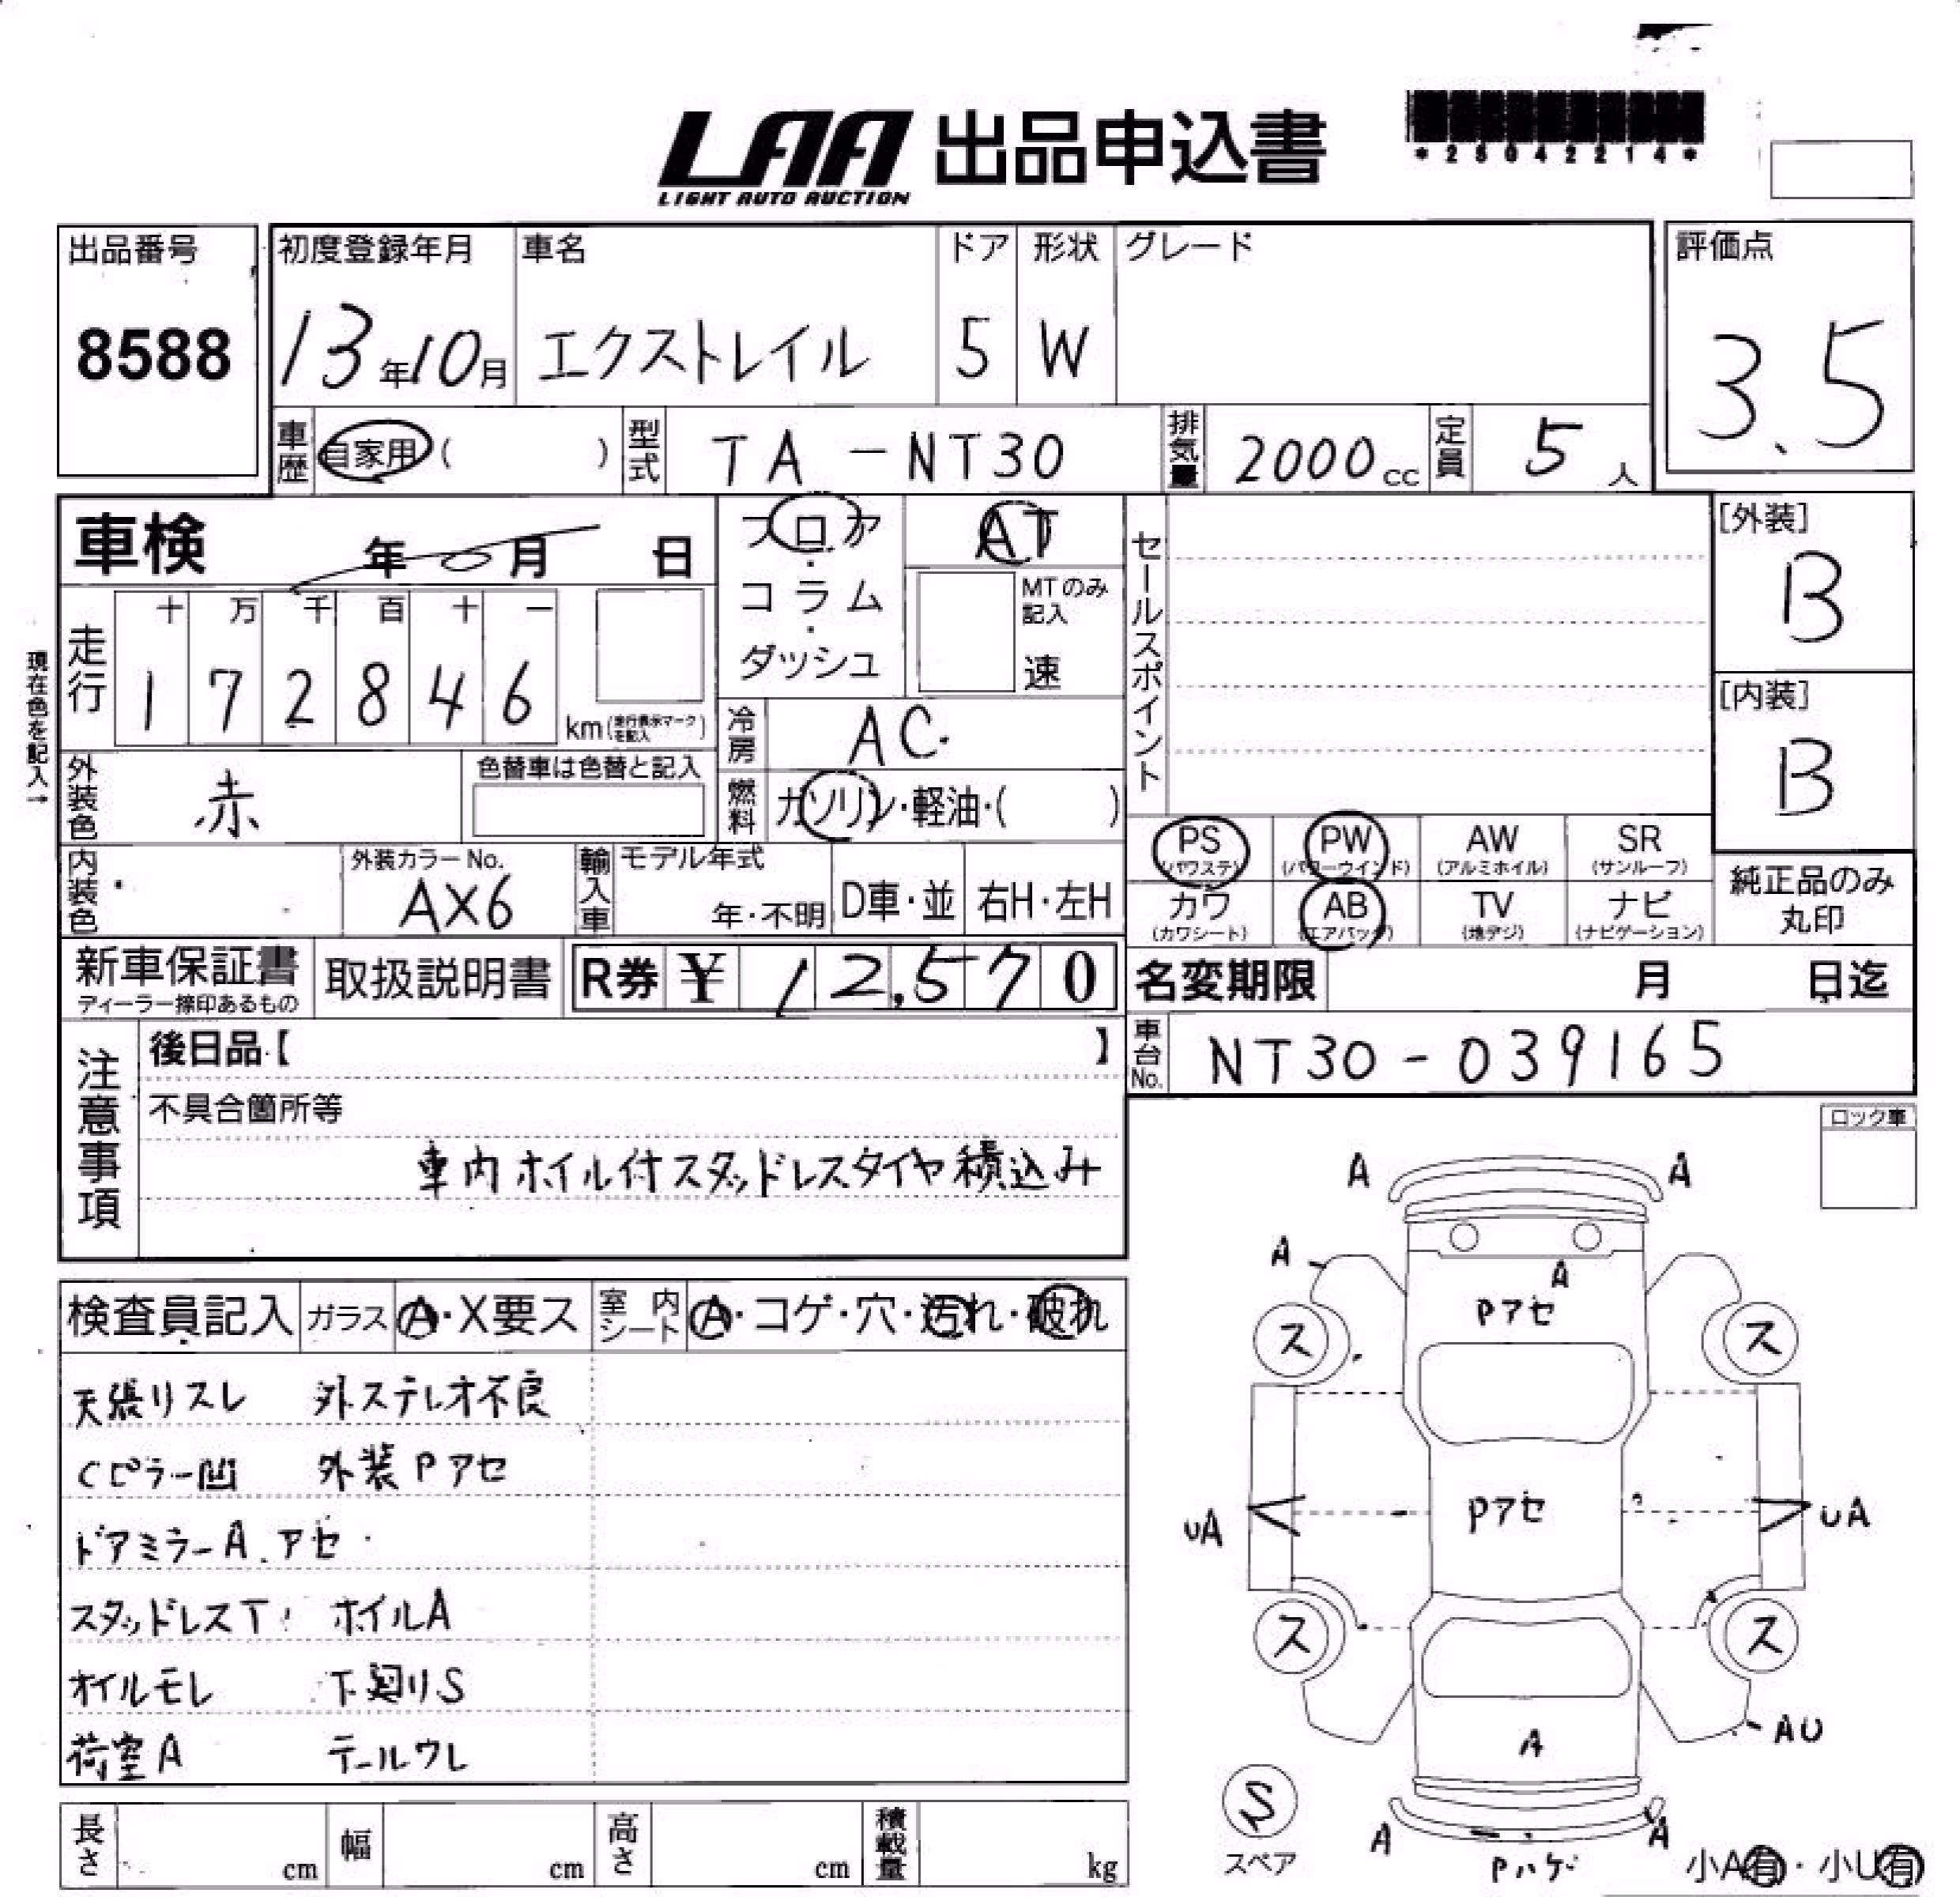 LAA 出品申込書
LIGHT AUTO AUCTION
*25042214*
出品番号
8588
初度登録年月
13年10月
車名
エクストレイル
ドア
5
形状
W
グレード
評価点
3.5
車歴 自家用 ( )
型式 TA-NT30
排気量 2000cc
定員 5人
車検 年 月 日
フロア・コラム・ダッシュ
AT
MTのみ記入
速
セールスポイント
[外装]
B
[内装]
B
現在色を記入→
走行
十 万 千 百 十 一
1 7 2 8 4 6
km (走行表示マークを記入)
冷房 AC
外装色 赤
色替車は色替と記入
燃料 ガソリン・軽油・( )
PS (パワステ)
PW (パワーウインド)
AW (アルミホイル)
SR (サンルーフ)
カワ (カワシート)
AB (エアバッグ)
TV (地デジ)
ナビ (ナビゲーション)
純正品のみ丸印
内装色
外装カラーNo.
AX6
輸入車
モデル年式
年・不明
D車・並
右H・左H
新車保証書
ディーラー捺印あるもの
取扱説明書
R券 ¥ 12,570
名変期限 月 日迄
車台No. NT30-039165
注意事項
後日品【 】
不具合箇所等
車内ホイル付スタッドレスタイヤ積込み
ロック車
検査員記入
ガラス A・X要ス
室内シート A・コゲ・穴・汚れ・破れ
天張リスレ 外ステレオ不良
Cピラー凹 外装Pアセ
ドアミラーA.アセ
スタッドレスT ホイルA
オイルモレ 下廻リS
荷室A テールワレ
A A
A
A
Pアセ
ス ス
Pアセ
UA UA
ス ス
AU
A
S
スペア
A A
Pハゲ
小A有・小U有
長さ cm
幅 cm
高さ cm
積載量 kg